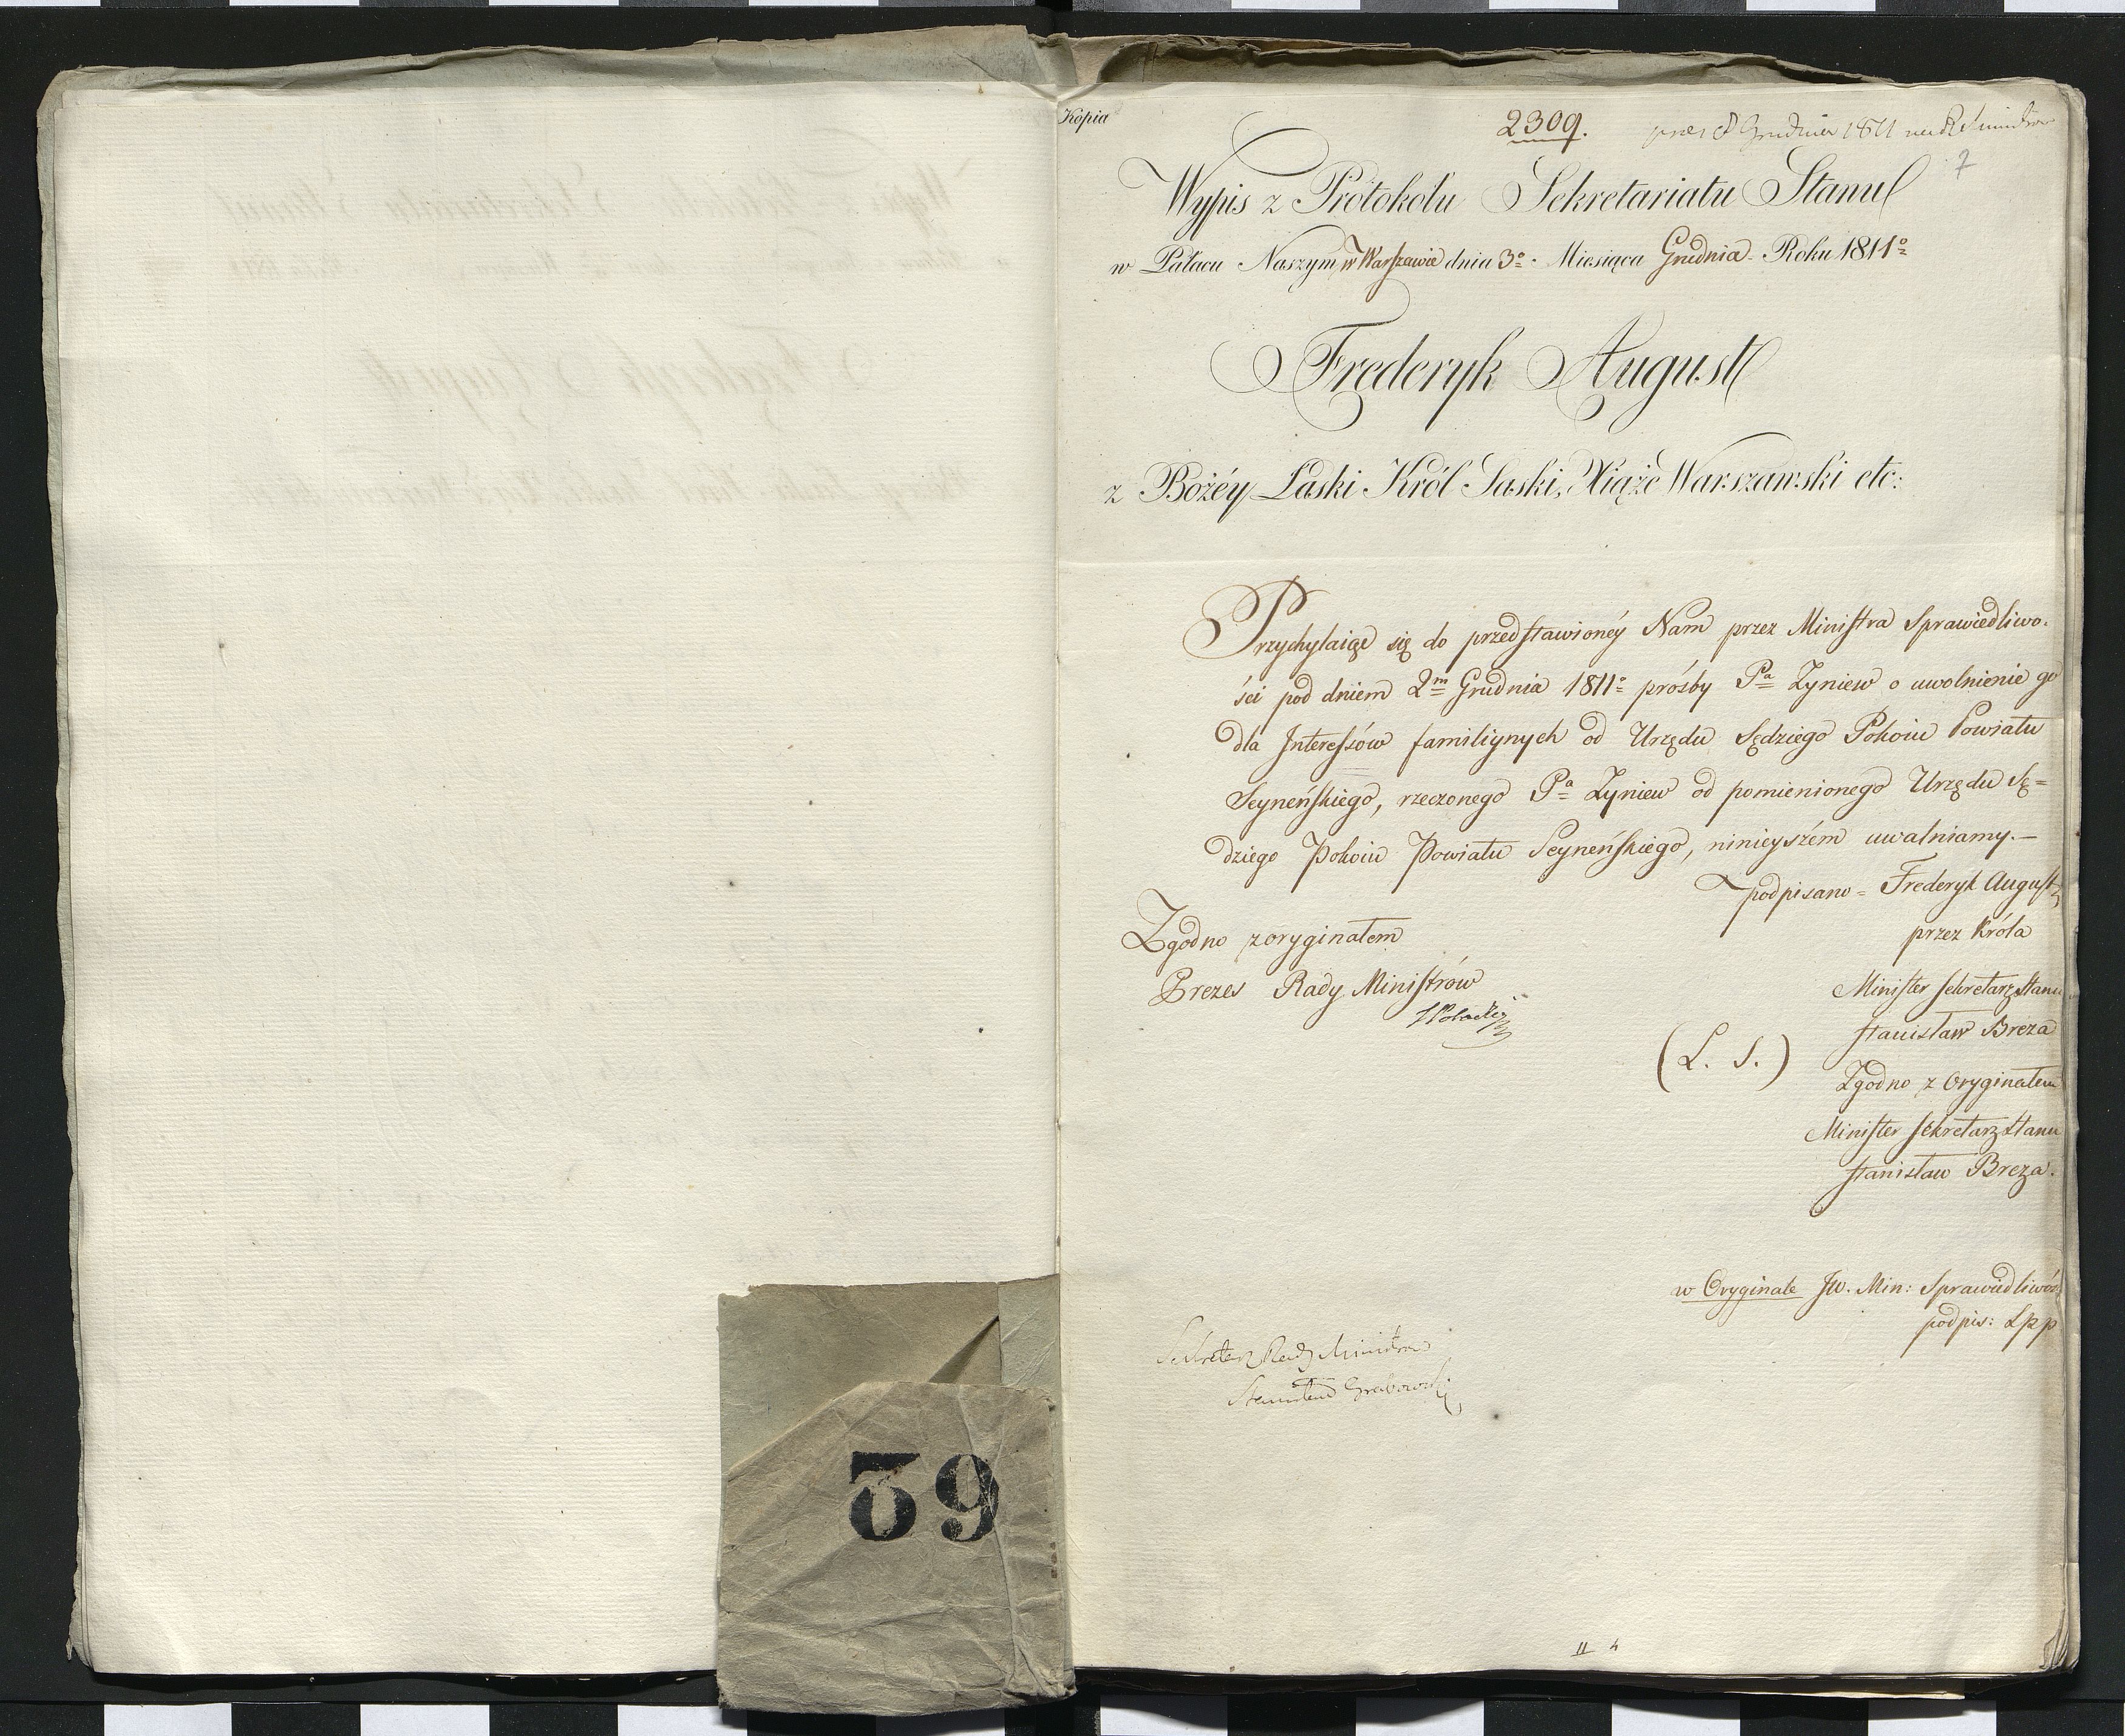 Kopia
2309.
pres 8 Grudnia 1811 na R Ministrów
7
Wypis z Protokołu Sekretariatu Stanu
w Pałacu Naszym w Warszawie dnia 3º Miesiąca Grudnia Roku 1811º
Frederyk August
z Bożéy Łaski Król Saski, Xiąże Warszawski etc:
Przychylaiąc się do przedstawionéy Nam przez Ministra Sprawiedliwo-
ści pod dniem 2m Grudnia 1811º prośby Pa Zyniew o uwolnienie go
dla Interessów familiynych od Urzędu Sędziego Pokoiu Powiatu
Seyneńskiego, rzeczonego Pa Zyniew od pomienionego Urzędu Sę=
dziego Pokoiu Powiatu Seyneńskiego, ninieyszém uwalniamy.—
podpisano = Frederyk August
przez Króla
Zgodno z oryginałem
Prezes Rady Ministrów
Minister Sekretarz Stanu
Stanisław Breza
(L. S.)
Zgodno z Oryginałem
Minister Sekretarz Stanu
Stanisław Breza.
w Oryginale JW. Min: Sprawiedliwości
podpis:
Sekretarz Rady Ministrów
Stanisław Grabowski
39
II 4